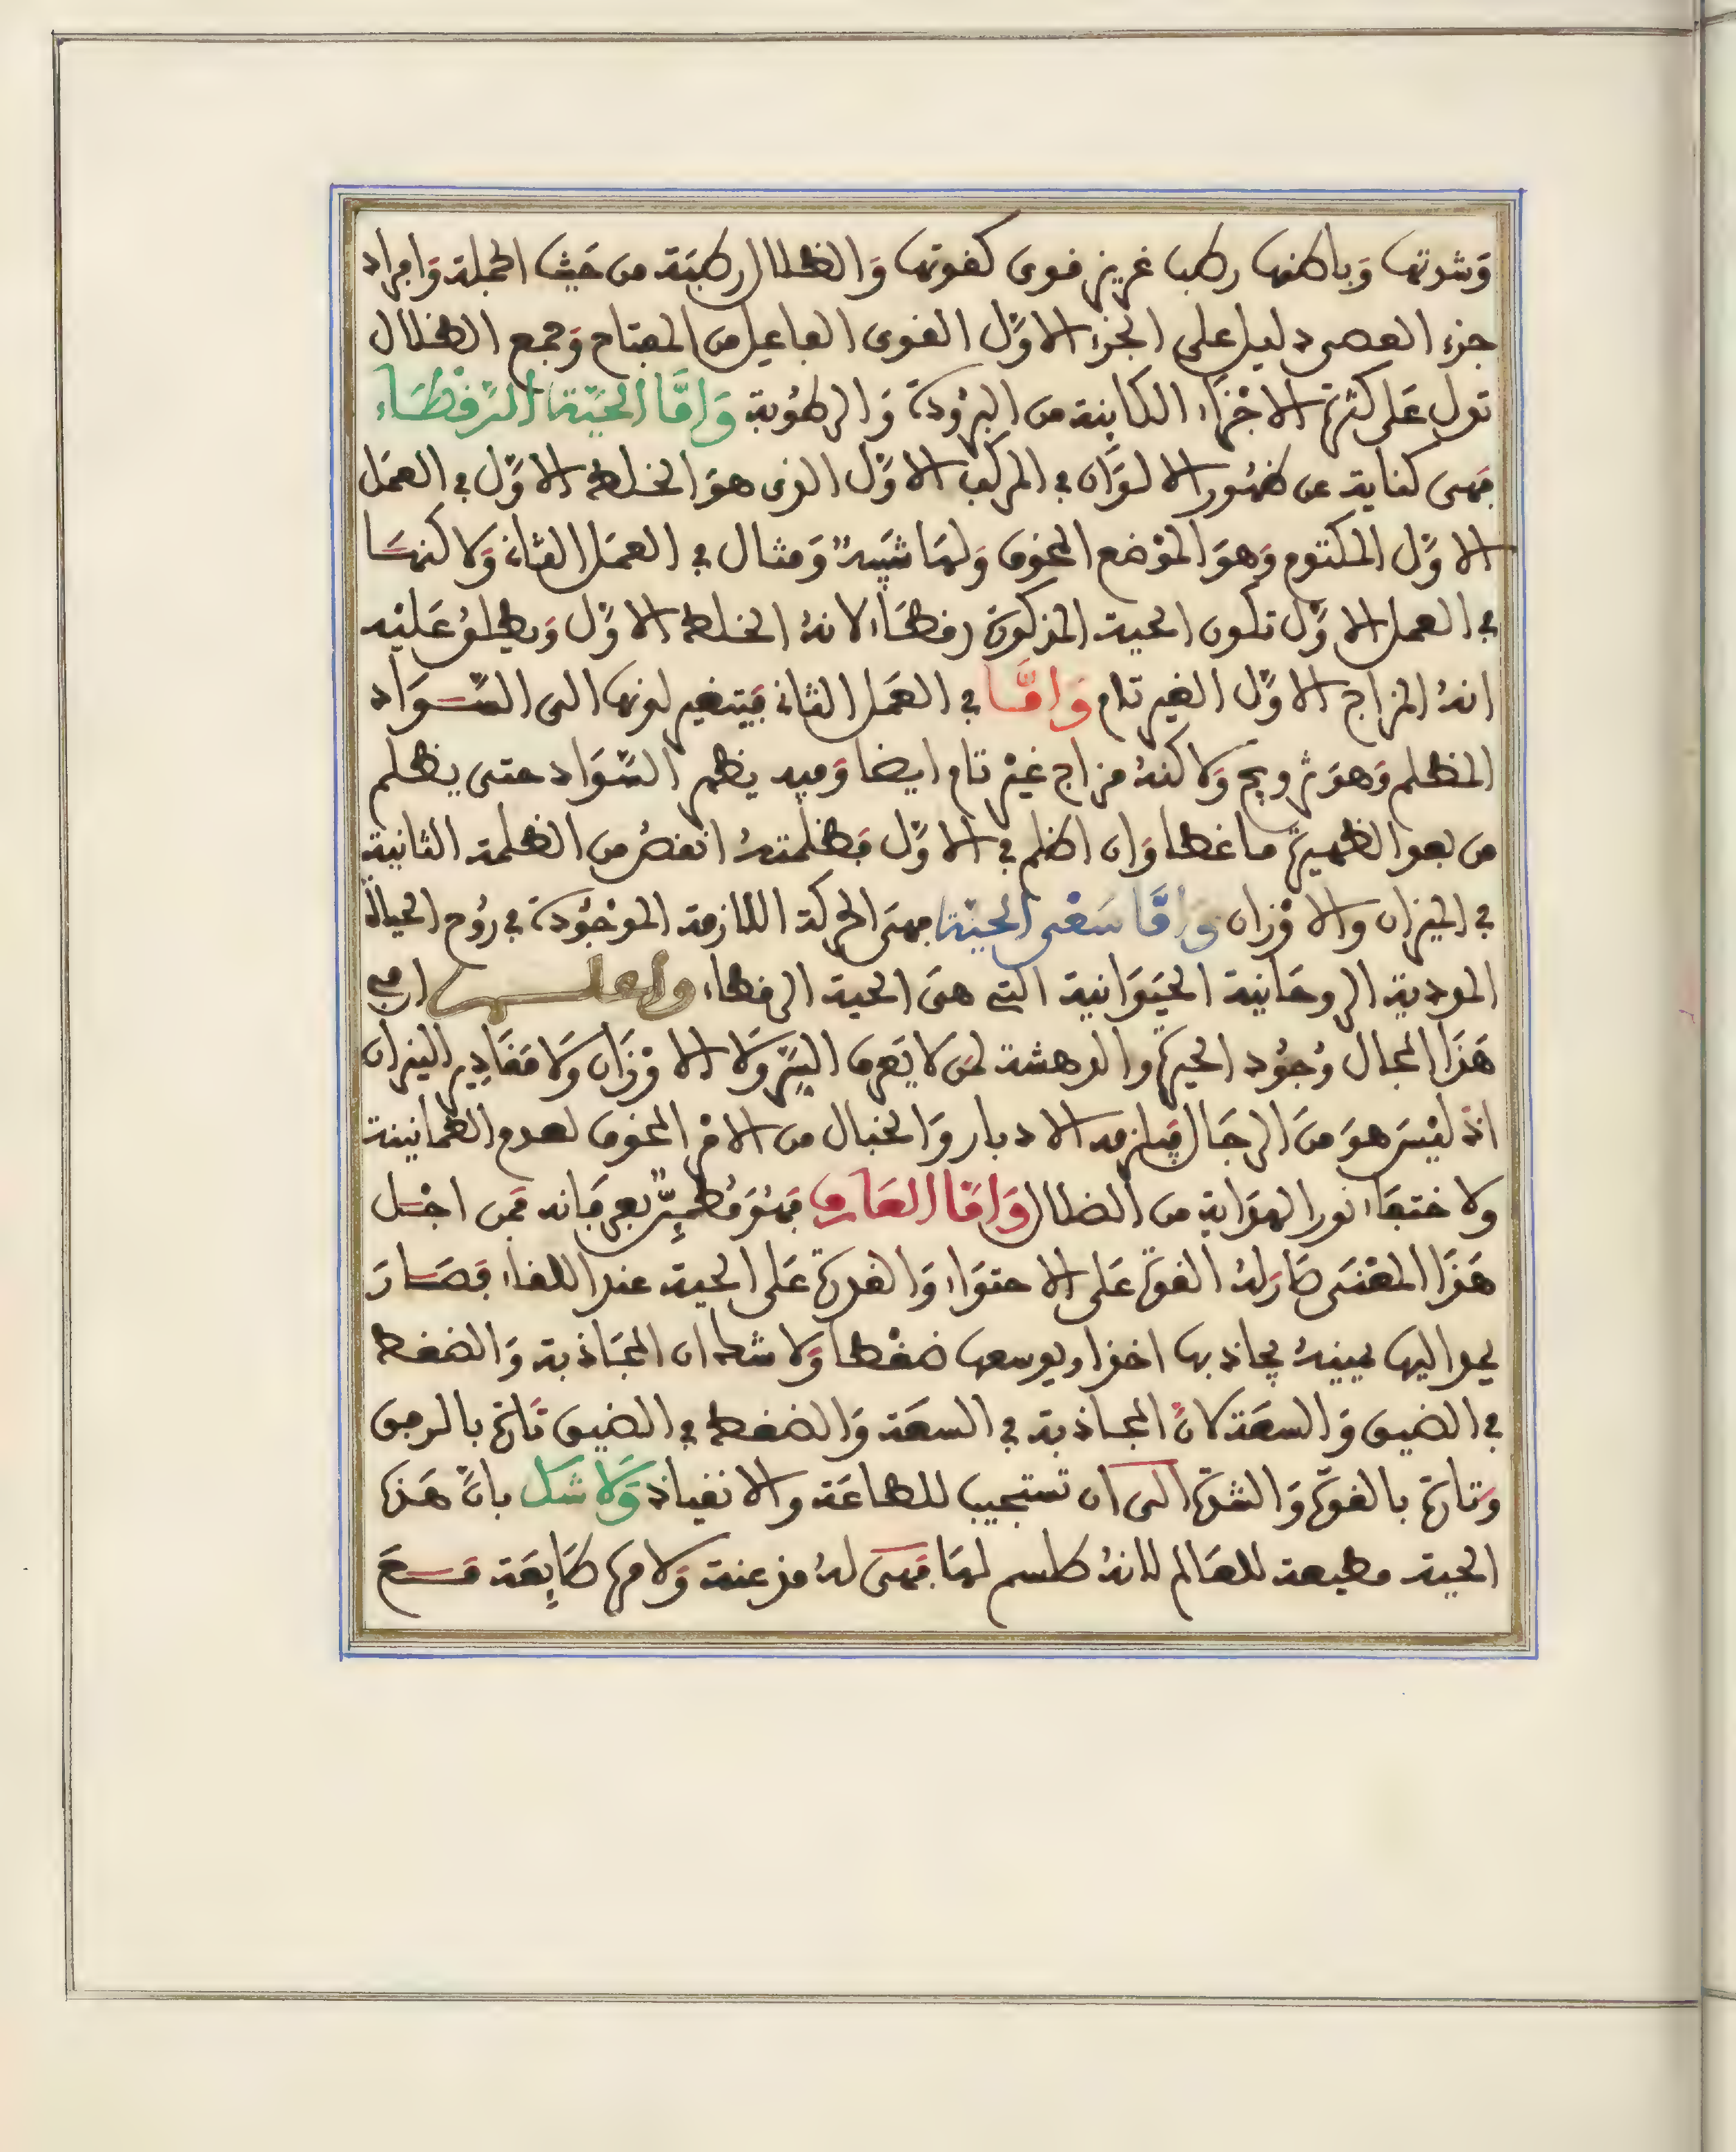 وَشدتها وَباطنها رطب غريزى قوى كقوتها وَالظلال رطبَة من حَيث الجملة وَافراد
جزء العصى دليل على الجزء الاوَّل القوى الفاعل من المفتاح وَجمع الظلال
تدل عَلى كثرة الاجْزَاء الكاينة من البرُودَة وَالرطُوبة وَامَّا الحَيَّة الرَّقْطَاء
فهى كناية عن ظهُور الالوَان في المركب الاوَّل الذى هوَ الخلط الاوَّل في العمَل
الاوَّل المكتوم وَهوَ الموْضع المخوف وَلهَا شبَيهٌ وَمثال في العمَل الثانى وَلاكنهَا
في العمل الاوَّل تكون الحية المذكورَة رقطَاء لانهُ الخلط الاوَّل وَيطلقُ عَليْه
انهُ المزاج الاوَّل الغير تام وَامَّا في العمَل الثانى فيَتغير لونها الى السَّوَاد
المظلم وَهوَ تزويج وَلاكنهُ مزاج غيْر تام ايضا وَفيه يظهر السَّوَاد حتى يظلم
من بعد الظهيرة ما غطا وَان اظلم في الاوَّل فظلمتهُ انقصُ من الظلمة الثانية
في الميزان والاوْزان وَامَّا سَعْى الحيَّة فهىَ الحركة اللازمة الموْجُودَة في رُوح الحياة
المودية الروحَانية الحيَوَانية التي هىَ الحية الرقطاء واعلم ان في
هَذَا المجال وُجُود الحيرة والدهشة لمَن لا يَعرف السِّر وَلا الاوْزَان وَلا مَقَادِير النيران
اذ ليْسَ هوَ منَ الرجَال فيَلزمه الادبار وَالخبال من الامْر المخوف لعدم الطمانينة
ولاختفَاء نور الهدَاية من الضلال وَامَّا العَارف فهُوَ مُطمئِنٌّ بعرفَانه فمَن اجْل
هَذَا المعْنى صَارَ لهُ القوة عَلى الاحتوَاء وَالقدرة عَلى الحية عند اللقاء فصَارَ
يمد اليها يمينهُ يجاذبها اخذا ويوسعها ضغْطا وَلا شك ان المجَاذبة وَالضغط
في الضيق وَالسعَة كانَّ المجاذبة في السعَة وَالضغط في الضيق تَارة بالرفق
وَتارة بالقوَّة وَالشدَّة الى ان تستجيب للطاعَة والانقياد وَلا شك بانَّ هَذه
الحية مطيعة للعَالم لانهُ طلسم لهَا فَهى لهُ مذعنة وَلامره طَايِعَة مَسعَ